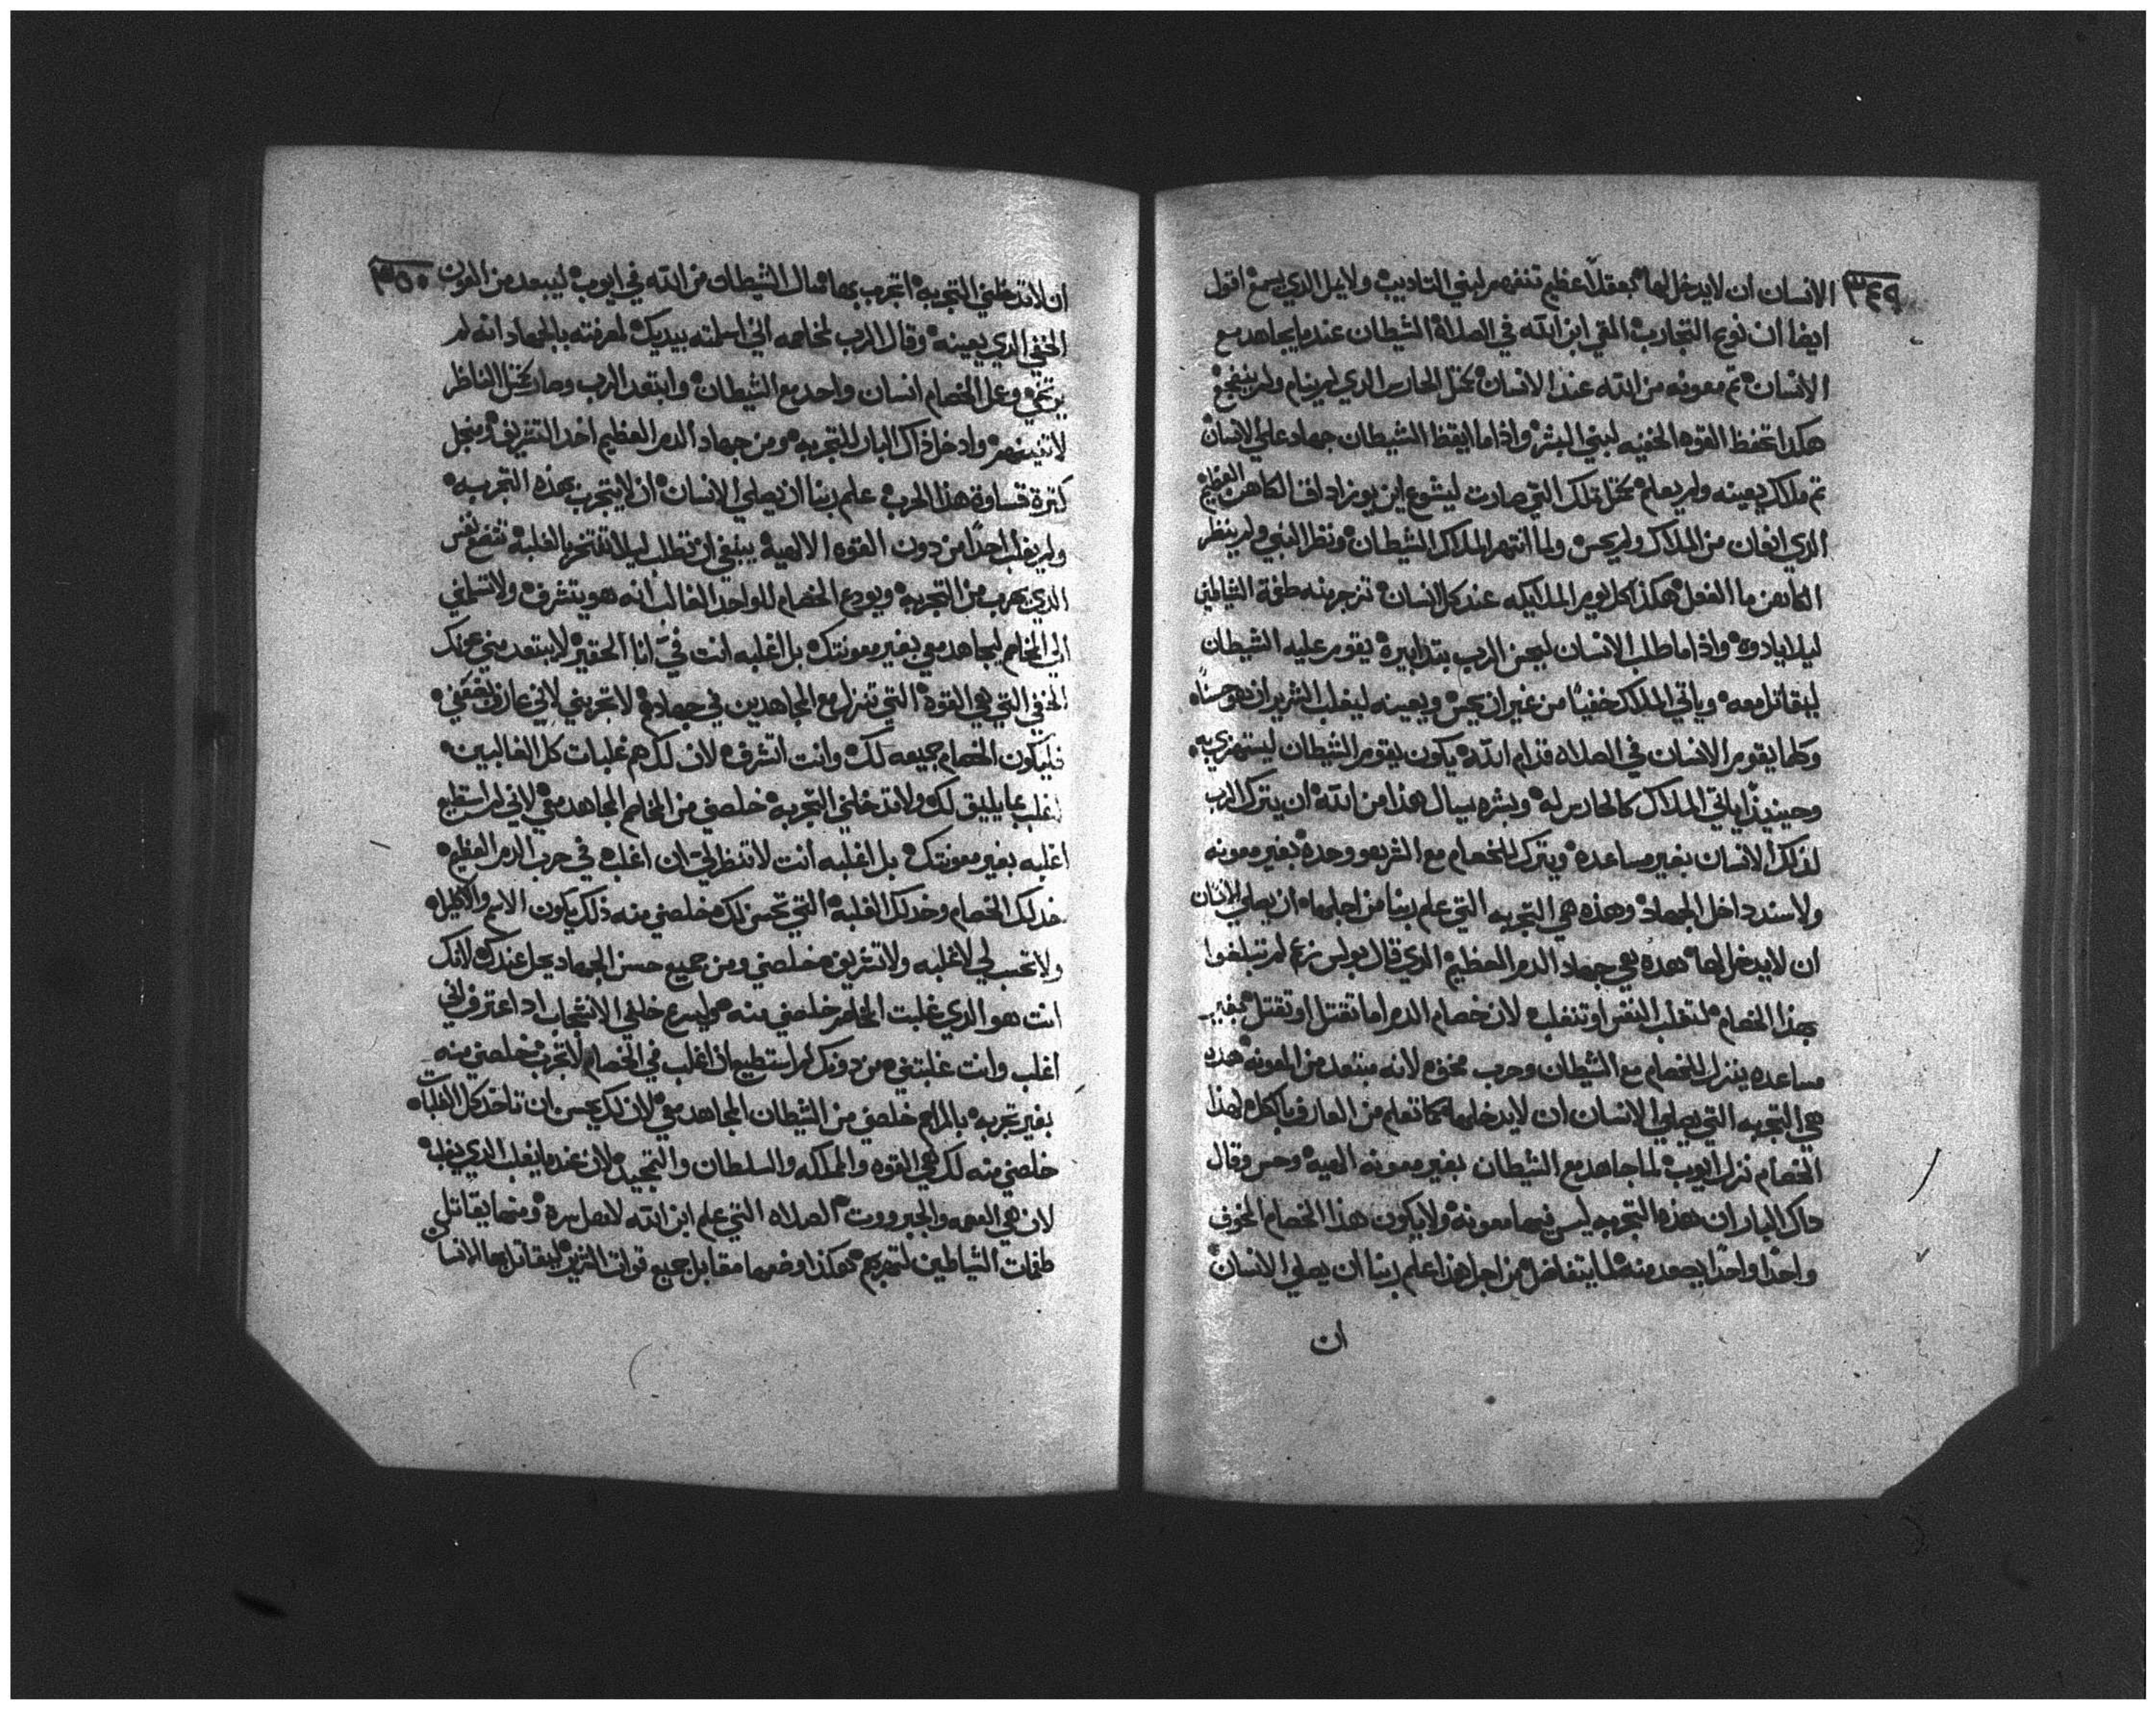 ٣٤٩
الانسان ان لايدخل لها بعقلاً عظيم تنفهم لبني التاديب ولايمل الذي يسمع اقول
ايضا ان نوع التجارب التقي ابن الله في الصلاة الشيطان عندما يجاهد مع
الانسان تم معونه من الله عند الانسان كمتل الحارس الدي لم ينام ولم ينضجع
هكدا تحفظ القوه الخفيه لبني البشر واذا ما ايقظ الشيطان جهاد على الانسان
تم ملاك يعينه ولم يعلم كمتل تلك التي صارت ليشوع ابن يوزاداق الكاهن العظيم
الدي انعان من الملاك ولم يحس ولما انتهر الملاك الشيطان ونظر النبي ولم ينظر
الكاهن ما الفعل هكذا كل يوم الملايكه عند كل انسان تزجر منه طغمة الشياطين
ليلا يادوه واذا ما طلب الانسان ليحس الرب بتدابيره يقوم عليه الشيطان
ليقاتل معه وياتي الملاك خفياً من غير ان يحس ويعينه ليغلب الشرير ان هو حسناً
وكلما يقوم الانسان في الصلاه قدام الله يكون يقوم الشيطان ليستهزي به
وحينيذاً ياتي الملاك كالحارس له وبشره يسال هذا من الله ان يترك الرب
لذلك الانسان بغير مساعده ويترك الخصام مع الشر هو وحده بغير معونه
ولا سند داخل الجهاد وهذه هي التجربه التي علم ربنا من اجلها ان يصلي الانسان
ان لايدخل لها هده هي جهاد الدم العظيم الدي قال بولس زع لم تبلغوا
بهذا الخصام لتغلب النفس او تنغلب لان خصام الدم اما تقتل او تقتل بغير
مساعده ينزل للخصام مع الشيطان وحرب مخوف لانه مبتعد من المعونه هده
هي التجربه التي يصلي الانسان ان لايدخلها كما تعلم من العارف بالكل لهذا
الخصام نزل ايوب لما جاهد مع الشيطان بغير معونه الهيه وحس وقال
داك البار ان هذه التجربه ليس فيها معونه ولايكون هذا الخصام المخوف
واحداً واحداً يصعد منه لما يتفاضل من اجل هذا علم ربنا ان يصلي الانسان
ان
٣٥٠
ان لاتدخلني التجربه اتجرب بها سال الشيطان من الله في ايوب ليبعد من العون
الخفي الدي يعينه وقال الرب لمخاصمه اني اسلمته بيديك لمعرفته بالجهاد انه لم
يرتخي وعمل الخصام انسان واحد مع الشيطان وابتعد الرب وصار كمتل الناظر
لاتنينهم وادخل ذاك البار للتجربه ومن جهاد الدم العظيم اخد التشريف ومن اجل
كترة قساوة هذا الحرب علم ربنا ان يصلي الانسان ان لايتجرب بهذه التجربه
ولم يغلب احداً من دون القوه الالهية ينبغي ان تطلب ليلا تفتخر بالغلبه تتضع نفس
الدي يهرب من التجربه ويودع الخصام للواحد الغالب انه هو يتشرف ولاتسلمني
الى المخاصم ليجاهد معي بغير معونتك بل اغلبه انت فيَّ انا الحقير لايبتعد مني عونك
الخفي التي هي القوة التي تنزل مع المجاهدين في جهادهم لاتجربني لاني عارف بضعفي
فليكون الخصام جميعه لك وانت اتشرف لان لك هم غلبات كل الغالبين
اغلب بما يليق لك ولاتدخلني التجربه خلصني من المخاصم المجاهد معي لاني لم استطيع
اغلبه بغير معونتك بل اغلبه انت لاتنظر ليَّ ان اغلبه في حرب الدم العظيم
خد لك الخصام وخد لك الغلبه التي تحسن لك خلصني منه ذلك يكون الاسم والاكليل
ولاتحسب لي لاغلبه ولاتشريف خلصني ومن جميع حسن الجهاد يحل عندك لانك
انت هو الدي غلبت المخاصم خلصني منه وليسرع خلفي الانتخاب اداعترف اني
اغلب وانت غلبتني من دونك لم استطيع ان اغلب في الخصام لاتجرب خلصني منه
بغير تجربه بالمراحم خلصني من الشيطان المجاهد معي لان لك يحسن ان تاخد كل الغلبات
خلصني منه لك هي القوه والمملكه والسلطان والتمجيد لان عندما يغلب الدي يغلبه
لان هي القوه والجبرووت الصلاه التي علم ابن الله لاهل سره ومنها يقاتل
طغمات الشياطين لتجربهم هكذا وضعها مقابل جميع قوات الشرير ليقاتل بها الانسان